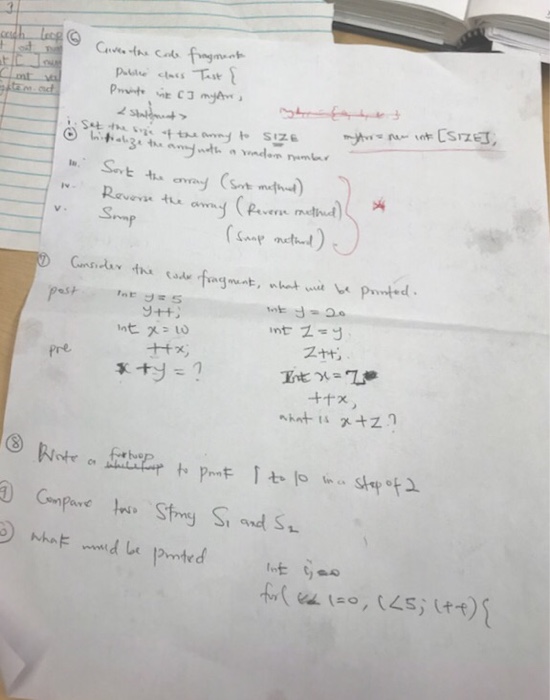 3
each loop
int val
⑥ Given the code fragments
Public class Test {
Private int [] myArr;
< Statement >
i. Set the size of the array to SIZE myArr = new int [SIZE];
ii Initialize the array with a random number
iii. Sort the array (Sort method)
iv. Reverse the array (Reverse method)
v. Swap (Swap method)
⑦ Consider the code fragment, what will be printed.
post int y = 5
y++;
int x = 10
pre ++x;
x + y = ?
int y = 20
int Z = y
Z++;
Int x = Z
++x,
what is x + Z ?
⑧ Write a for loop to print 1 to 10 in a step of 2
⑨ Compare two String S1 and S2
what would be printed
int i;
for( i=0, i<5; i++) {